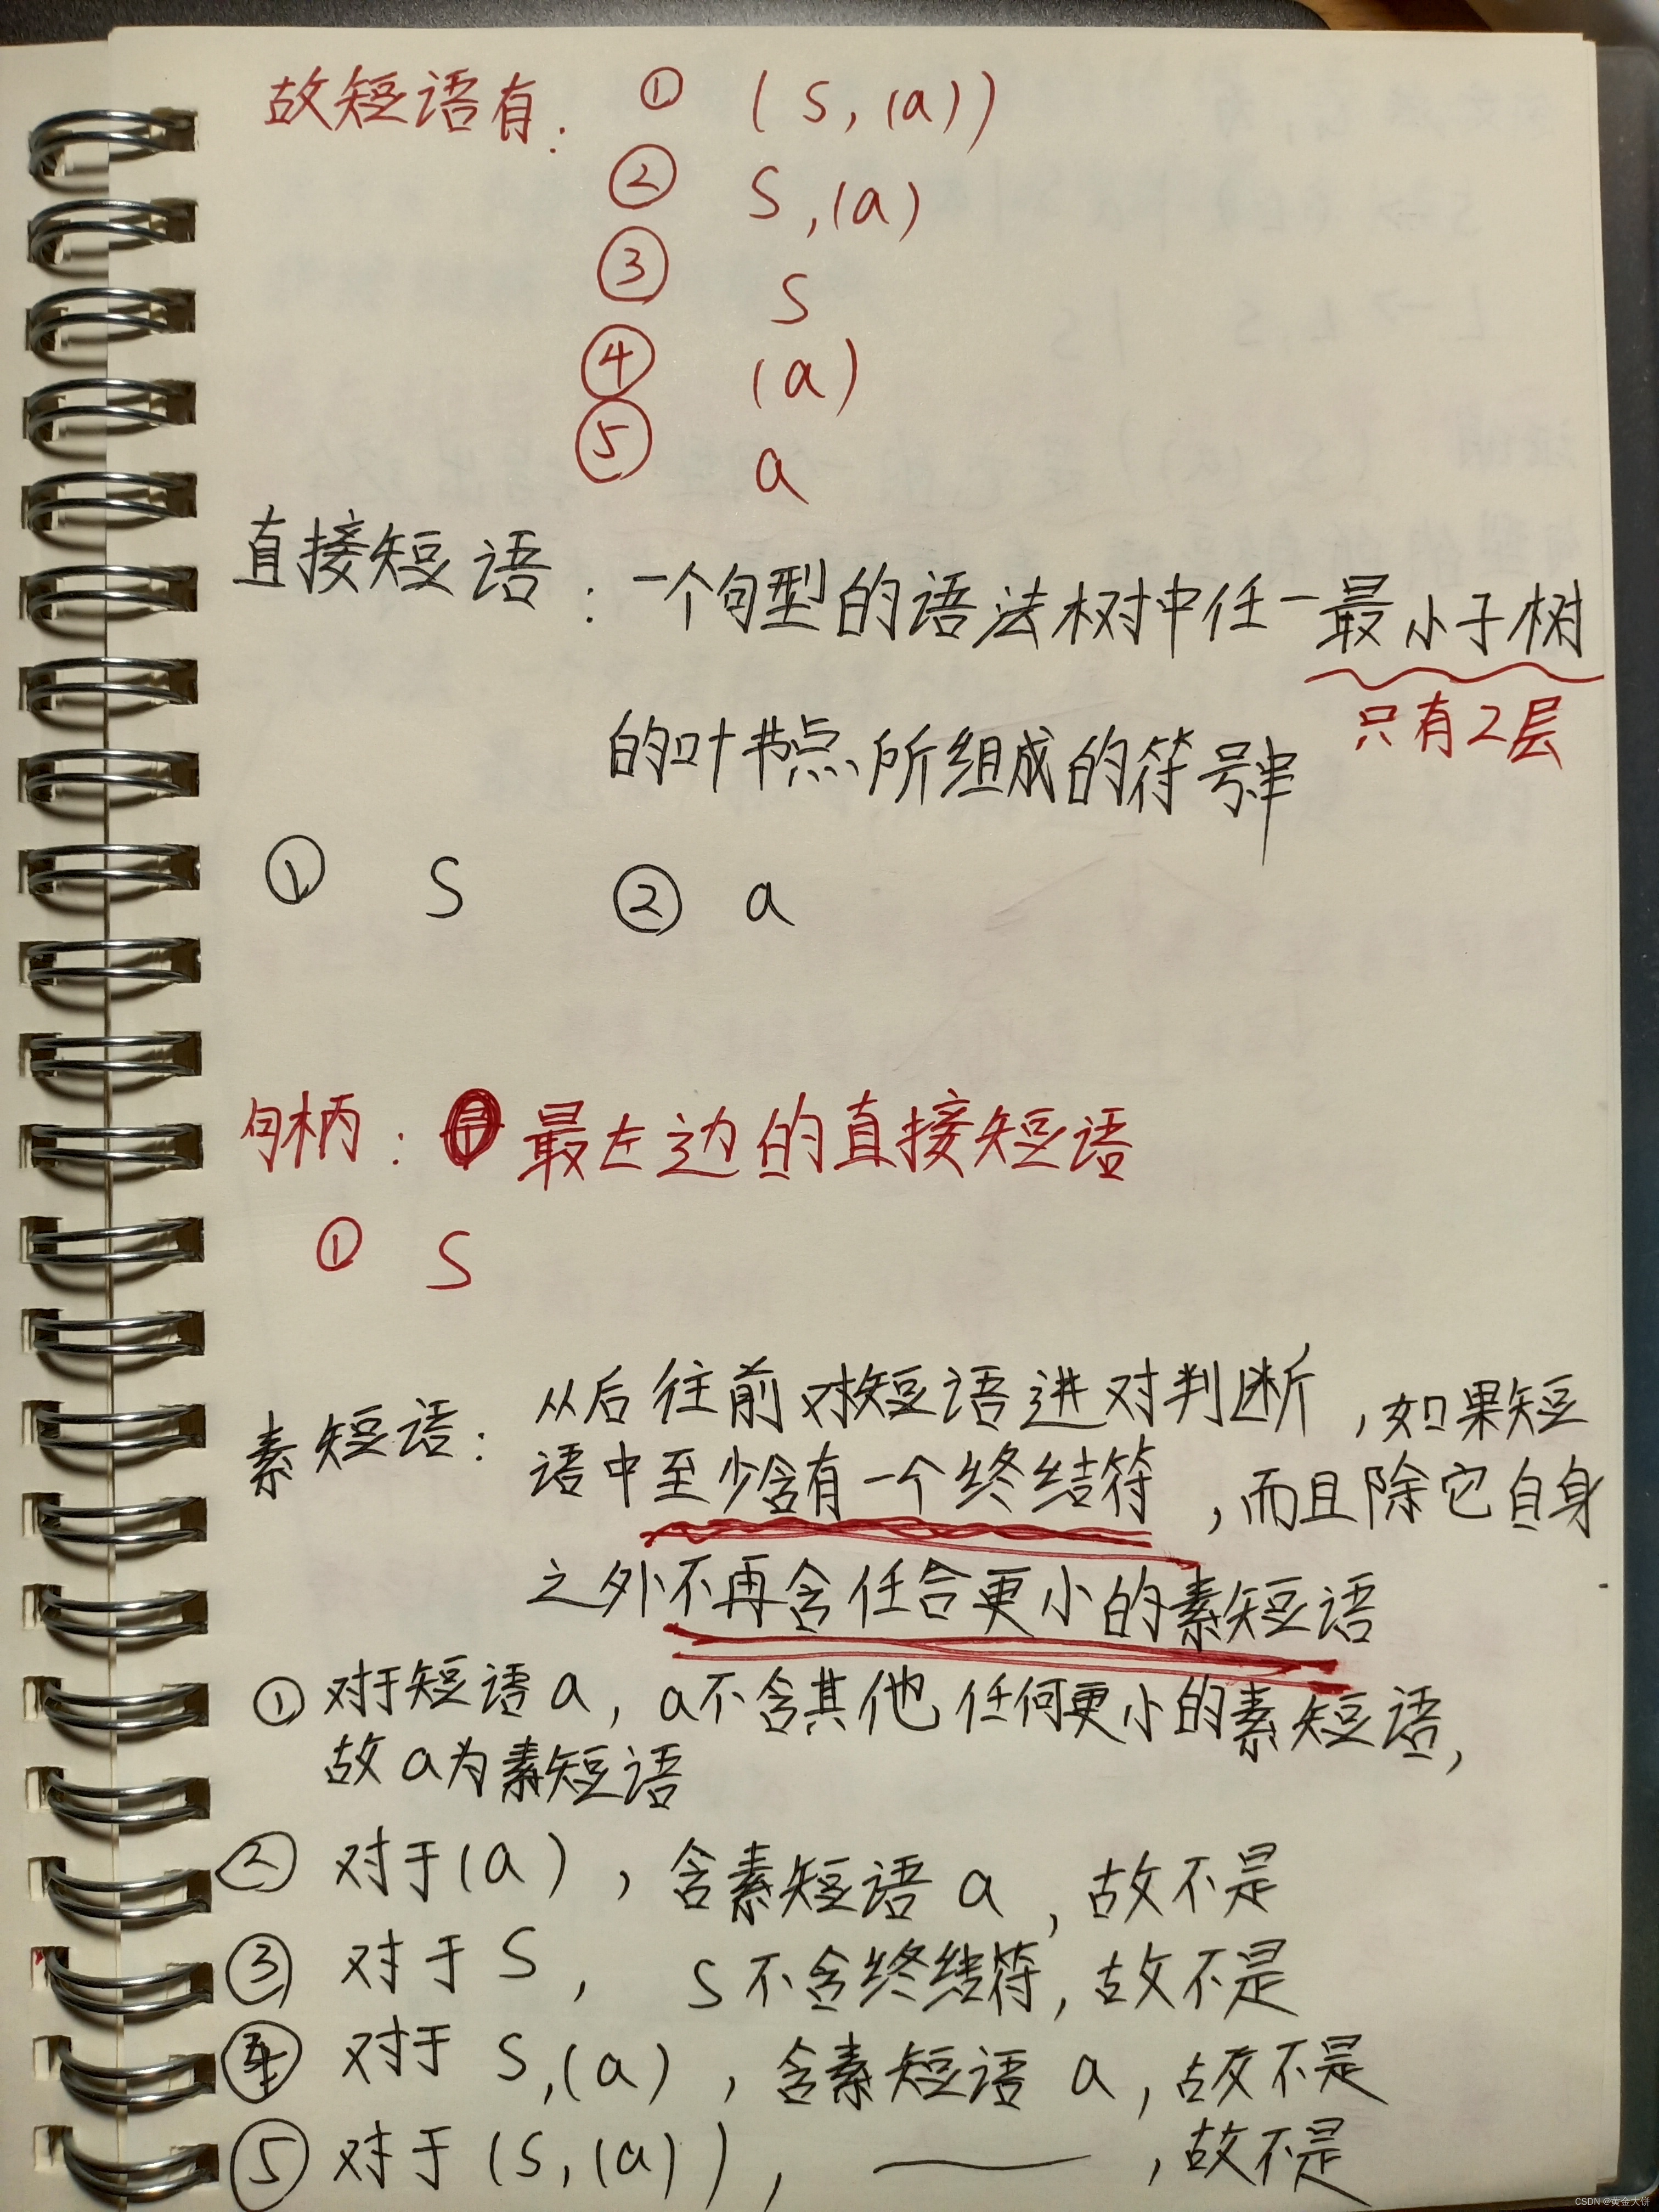 故短语有: ① (S,(a))
② S,(a)
③ S
④ (a)
⑤ a
直接短语: 一个句型的语法树中任一最小子树
只有2层
的叶节点所组成的符号串
① S ② a
句柄: 最左边的直接短语
① S
素短语: 从后往前对短语进对判断,如果短
语中至少含有一个终结符,而且除它自身
之外不再含任合更小的素短语
① 对于短语a, a不含其他任何更小的素短语,
故a为素短语
② 对于(a), 含素短语a, 故不是
③ 对于S, S不含终结符, 故不是
④ 对于S,(a), 含素短语a, 故不是
⑤ 对于(S,(a)), ——, 故不是
CSDN @黄金大饼